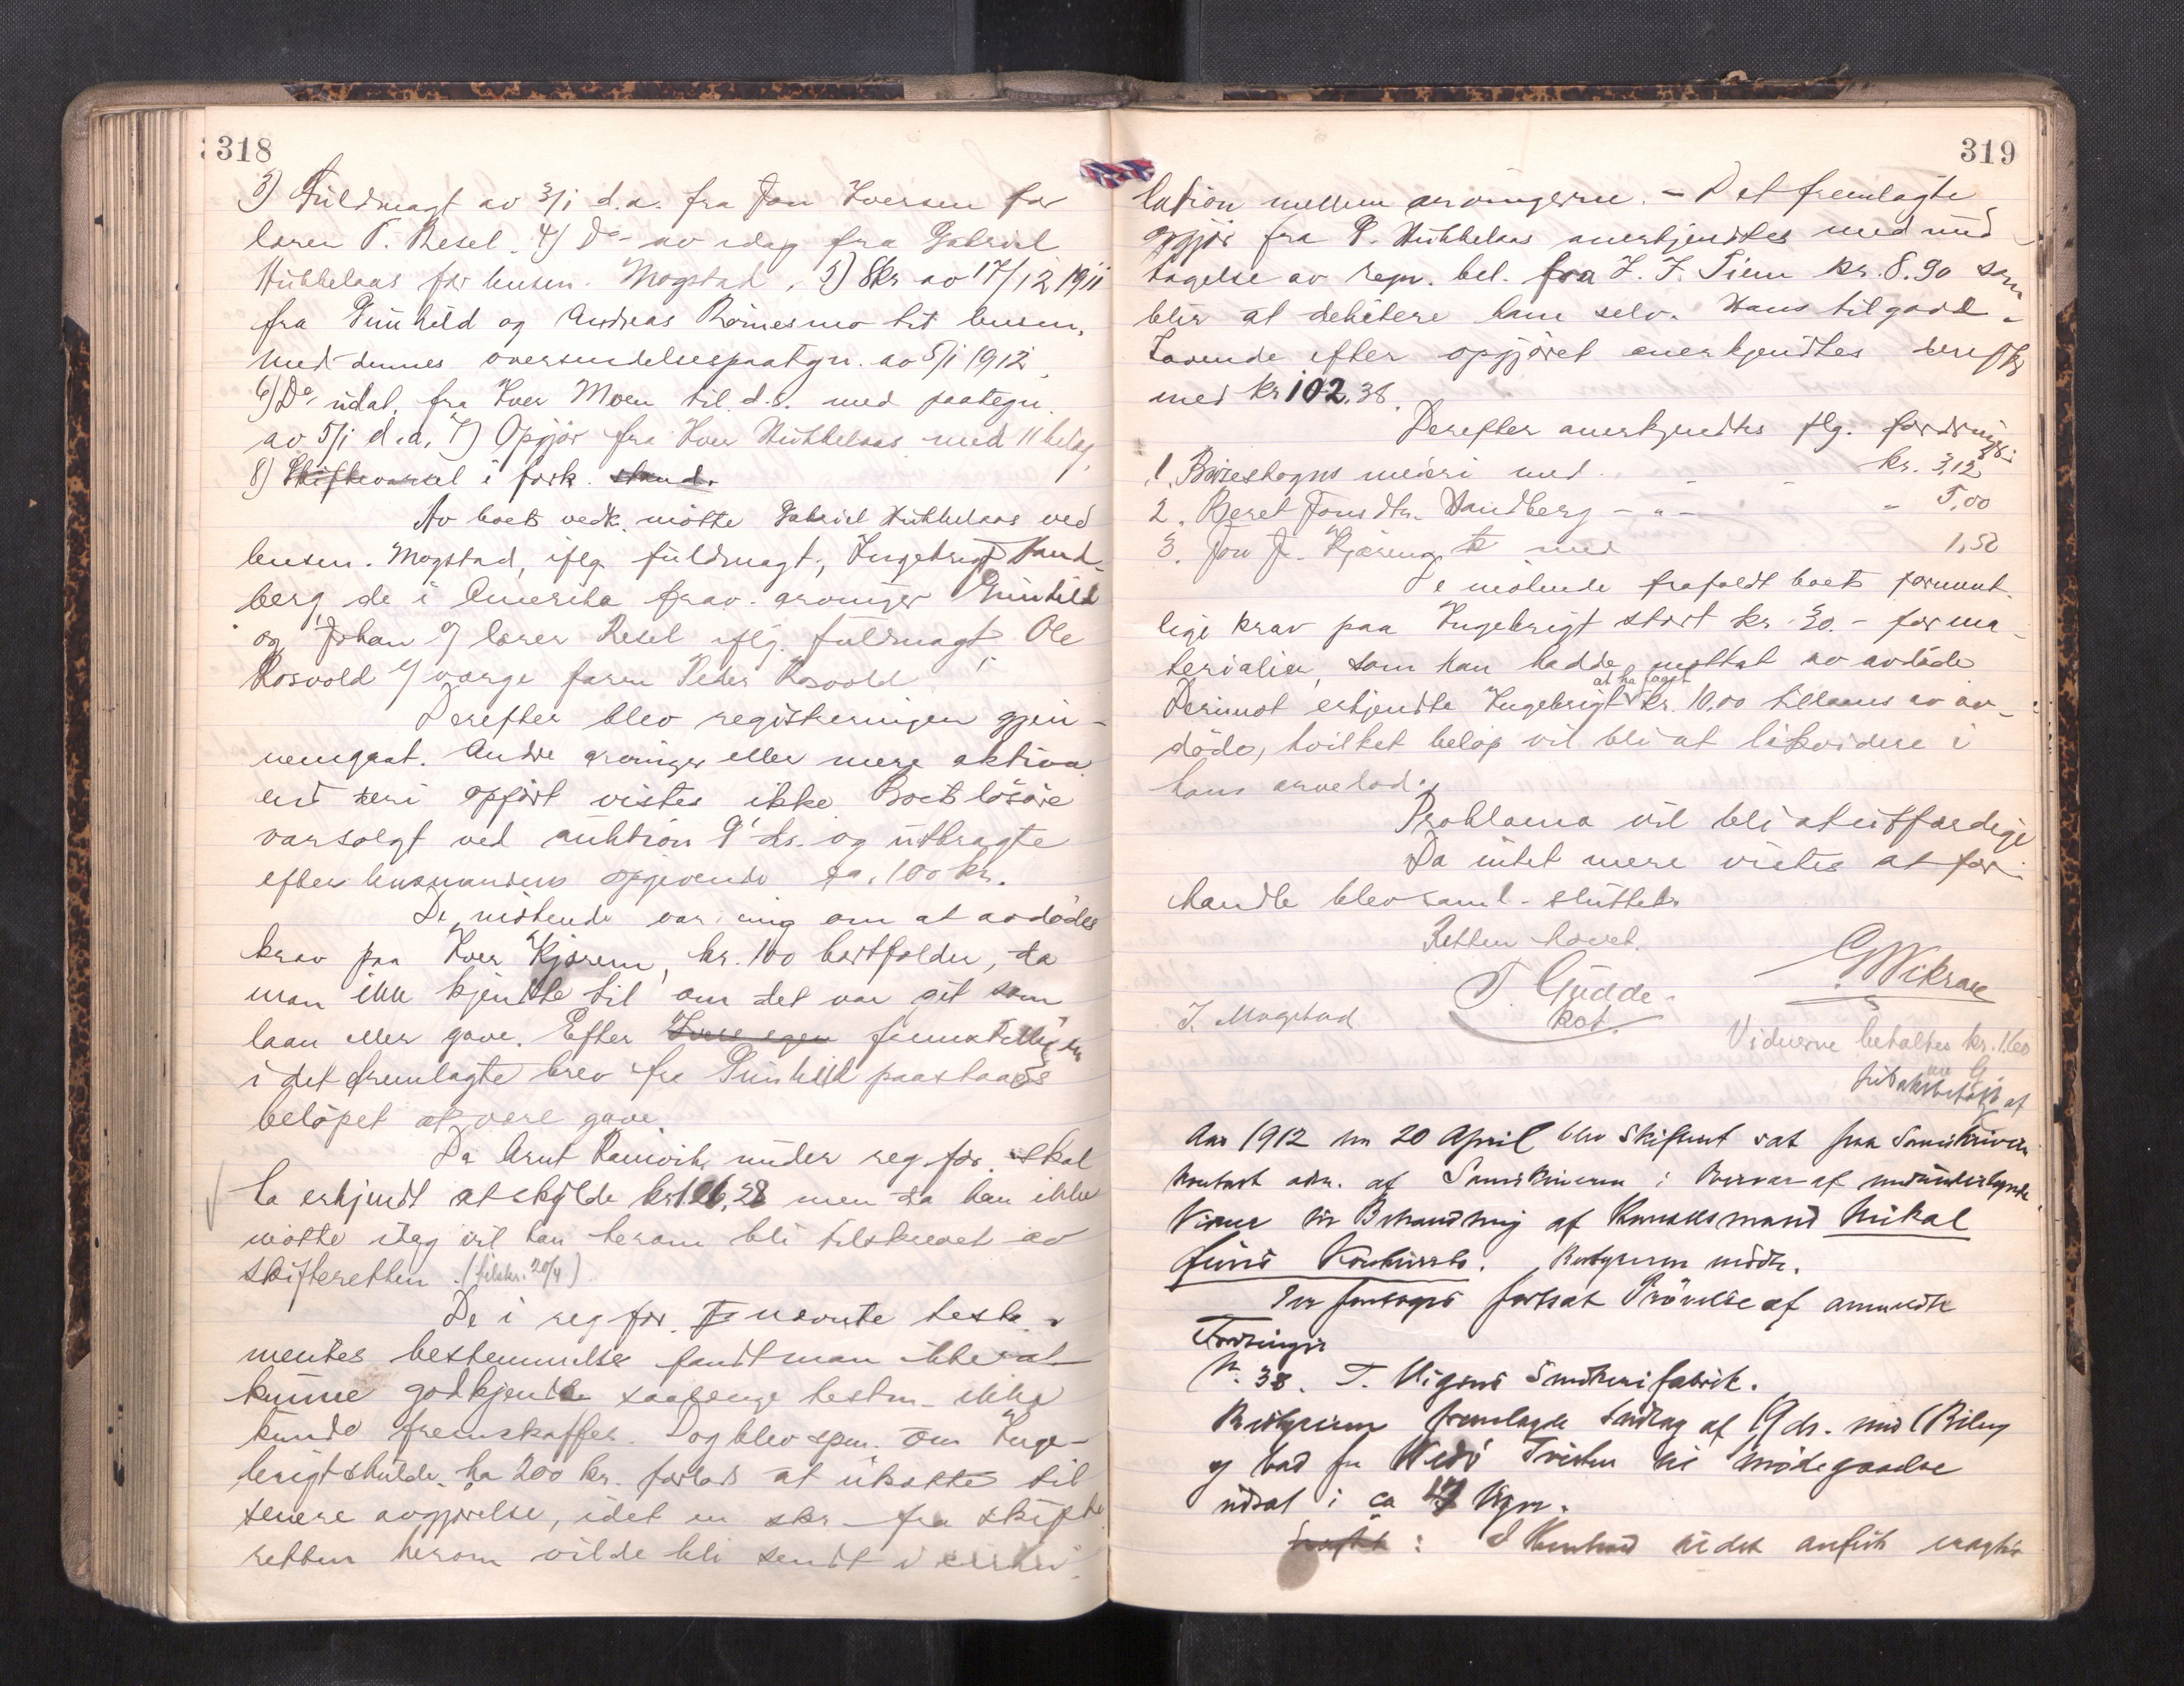 318
3) Fuldmagt av 3/1 d.a. fra Jon Iversen for
lærer T. Resel. 4) Do av idag fra Gabriel
Hukkelaas for lensm. Mogstad, 5) Skr av 17/12 1911
fra Gunhild og Andreas Römesmo til lensm.
med dennes oversendelsespaategn. av 5/1 1912.
6) Do, udat. fra Iver Moen til d.s. med paategn.
av 5/1 d.a. 7) Opgjör fra Iver Hukkelaas med 11 belag,
8) Skiftevarsel i fork. stand.
Av boets vedk. mötte Gabriel Hukkelaas ved
lensm. Mogstad, iflg. fuldmagt, Ingebrigt Hand-
berg, de i Amerika frav. arvinger Gunhild
og Johan v/ lærer Resel iflg. fuldmagt, Ole
Rosvold v/ værge faren Peder Rosvold
Derefter blev registreringen gjen-
nemgaat. Andre arvinger eller mere aktiva
end heri opfört vistes ikke. Boets lösöre
var solgt ved auktion 9' ds. og utbragte
efter lensmandens opgivende ca. 100 kr.
De mötende var enig om at avdödes
krav paa Iver Kjörem, kr. 100 bortfalder, da
man ikke kjendte til om det var git som
laan eller gave. Efter Ivers egen fremstillingen
i det fremlagte brev fra Gunhild paastaaes
belöpet at være gave.
Da Arnt Ramvik under reg.for. skal
ha erkjendt at skylde kr 106,28 men da han ikke
mötte idag vil han herom bli tilskrevet av
skifteretten. (tilskr. 20/4)
De i reg for. nævnte testa-
mentes bestemmelse fandt man ikke at
kunne godkjende saalænge testm. ikke
kunde fremskaffes. Dog blev spm. om Inge-
brigt skulde ha 200 kr. forlods at utsætte til
senere avgjörelse, idet en skr. fra skifte
retten herom vilde bli sendt i cirku-
319
lation mellem arvingerne. - Det fremlagte
opgjör fra Hukkelaas anerkjendtes med und-
tagelse av regn. bel. fra J. F. Tiem kr. 8.90 som
blir at debitere ham selv. Hans tilgode-
havende efter opgjöret anerkjendtes
med kr 102.38.
Derefter anerkjendtes flg. fordringer:
1. Böseskogns meieri med - - kr. 3,12
2. Beret Jonsdtr. Handberg - " - - " 5,00
3. Jon J. Kjöreng med 1,50
De mötende frafaldt boets forment-
lige krav paa Ingebrigt stort kr. 30.- for ma-
terialier, som han hadde mottat av avdöde
Derimot erkjendte Ingebrigt at ha faaet kr. 10,00 tillaans av av-
döde, hvilket belöp vil bli at likvidere i
hans arvelod.
Proklama vil bli at utfærdige
Da intet mere vistes at for-
handle blev saml. sluttet.
Retten hævet.
GWikran
T. Gudde.
kst.
I. Mogstad
Vidnerne betaltes kr. 1.60
Aar 1912 den 20 April blev Skifteret sat paa Sorenskriver
kontoret adm. af Sorenskriveren i Overvær af medundertegnede
Vidner til Behandling af Handelsmand Mikal
Konkursbo. Bestyreren mödte.
Der foretoges fortsat Prövelse af anmeldte
Fordringer
No. 38. T. Snedkerifabrik.
Bestyreren fremlagde Indlæg af 19 ds. med Bilag
og bad udsat i ca 14 Dgr.
: I Henhold til det anförte